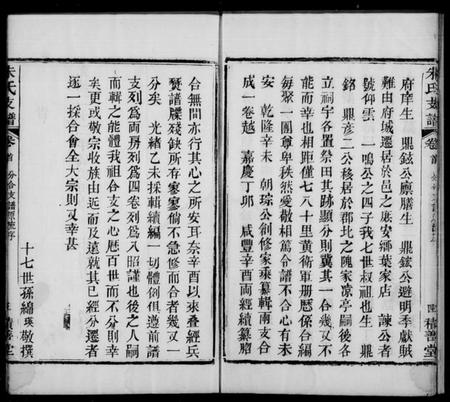 朱氏支譜
卷首
積善堂
府庠生 鼎鉉公廩膳生 鼎鉉公避明季獻賊
難由府城遷居於邑之應安鄉葉家店 諫公者
號仰雲 一鳴公之四子我七世叔祖也生 鼎
銘 鼎彥二公移居於郡北之隗家凉亭嗣後各
立祠宇各置祭田其跡顯分則冀其一合幾又不
能而幸也相距僅七八十里黃術軍册厯係合編
每聚一團尊卑秩然愛敬相篤分譜不合心有未
安 乾隆辛未 朝琮公創修家乘纂輯南支告
成 卷越 嘉慶丁卯 咸豐辛酉兩經續纂脗
合無間亦行其心之所安耳奈辛酉以來叠經兵
燹譜牒殘缺所存寥寥倘不急修而合者幾又一
分矣 光緒乙未採輯續編一切體例俱遵前譜
支列為四兩房列為四卷列為八昭謹也後之人嗣
而輯之能體我祖合支之心歷百世而不分則幸
矣更或敬宗收族由近而及遠就其已經分遷者
逐一採合會全大宗則又幸甚
十七世孫繡瑛敬撰
朱氏支譜
卷首